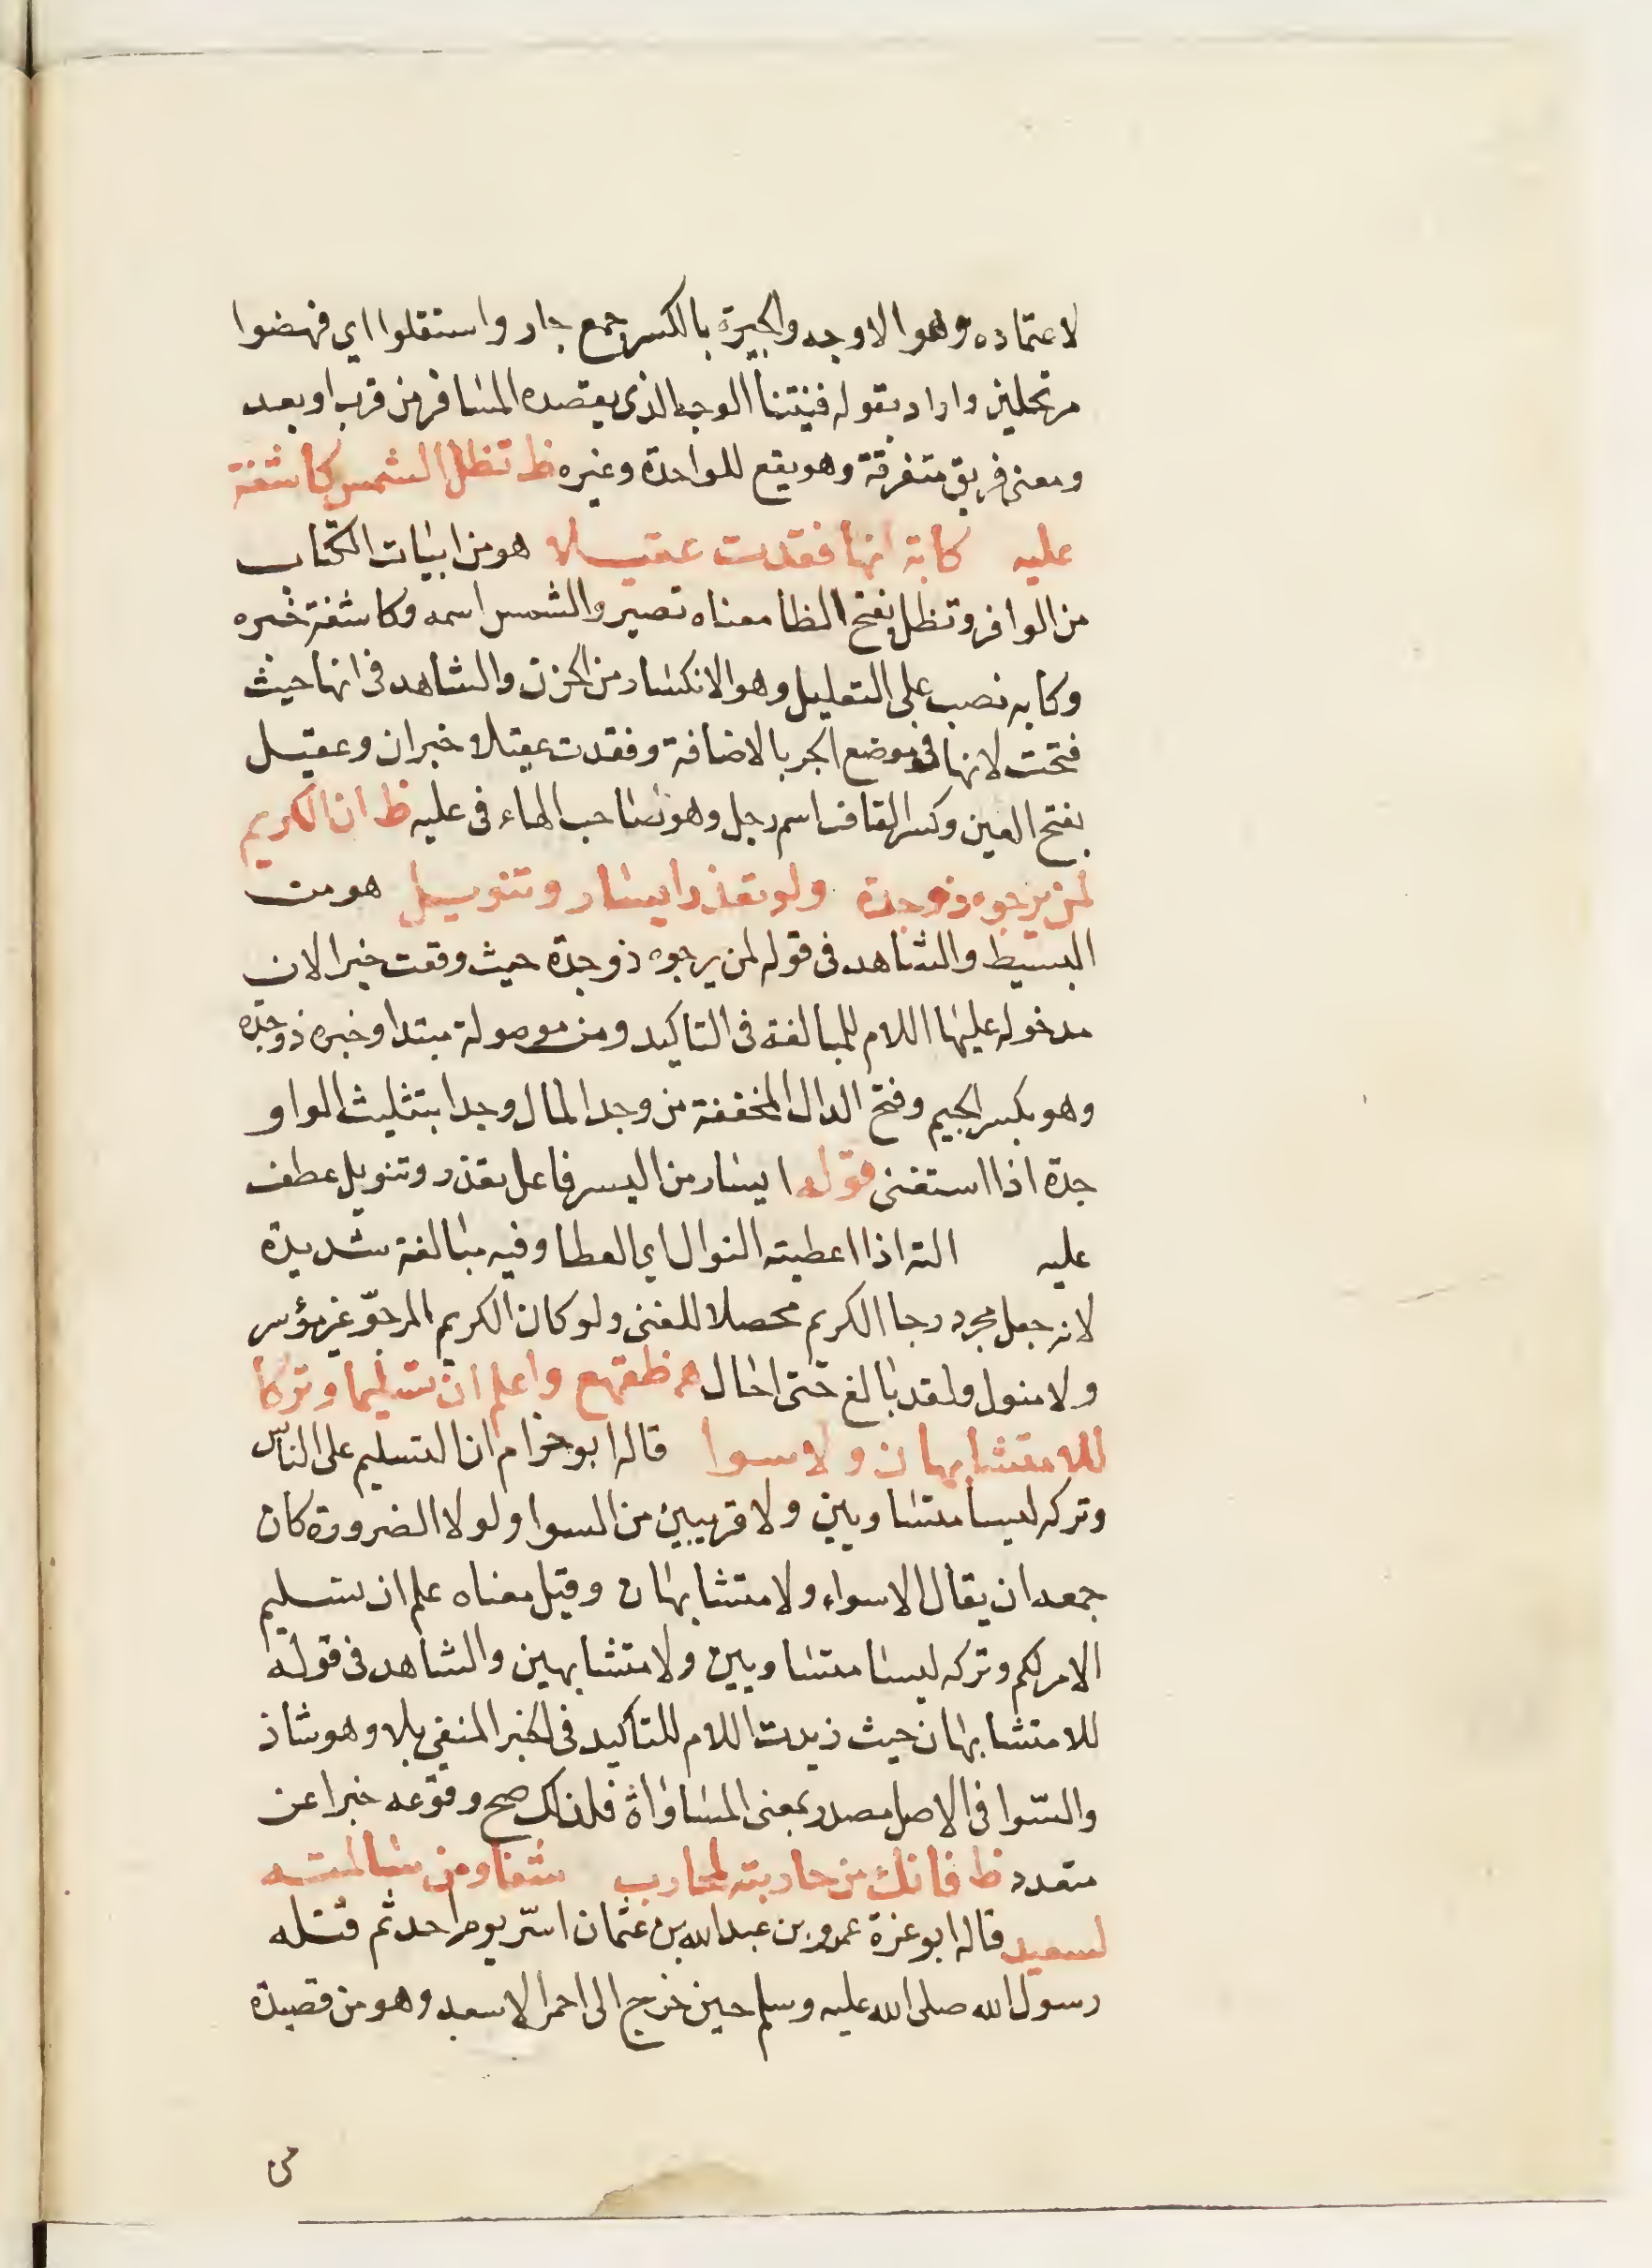 لاعتماده وهو الاوجه والجيرة بالكسر جمع جار واستقلوا اي فهضوا
مرتحلين واراد بقوله فنيتنا الوجه الذى يقصده المسافر من قرب او بعد
ومعنى فريق متفرقة وهو يقع للواحدة وغيره ظ تظل الشمس كاشفة
عليه كابة انها فقدت عقيلا هو من ابيات الكتاب
من الوافر وتظل بفتح الظا معناه تصير والشمس اسمه وكاشفة خبره
وكابه نصب على التعليل وهو الانكسار من الحزن والشاهد فى انها حيث
فتحت لانها فى موضع الجر بالاضافة وفقدت عقيلا خبر ان وعقيل
بفتح العين وكسر القاف اسم رجل وهو صاحب الهاء فى عليه ظ ان الكريم
لمن يرجوه ذو جدة ولو تعذر ايسار وتنويل هو من
البسيط والشاهد فى قوله لمن يرجوه ذو جدة حيث وقعت خبرا لان
مدخوله عليها اللام للمبالغة فى التاكيد ومن موصولة مبتدا وخبره ذو جدة
وهو بكسر الجيم وفتح الدال المخففة من وجد المال وجدا بتثليث الواو
جدة اذا استغنى قوله ايسار من اليسر فاعل تعذر وتنويل عطف
عليه الته اذا اعطيته النوال اي العطا وفيه مبالغة شديدة
لانه جعل مجرد رجا الكريم محصلا للغنى ولو كان الكريم المرجوّ غير مؤسر
ولا منول ولقد بالغ حتى احال ه ظقهع واعلم ان تسليما وتركا
للامتشابهان ولا سوا قاله ابو حزام ان التسليم على الناس
وتركه ليسا متساويين ولا قريبين من السوا ولولا الضرورة كان
جمعه ان يقال الاسواء ولا متشابهان وقيل معناه علم ان تسليم
الامر لكم وتركه ليسا متساويين ولا متشابهين والشاهد فى قوله
للامتشابهان حيث زيدت اللام للتاكيد فى الخبر المنفي بلا وهو شاذ
والسّوا فى الاصل مصدر بمعنى المساواة فلذلك صح وقوعه خبرا عن
متعدد ظ فانك من حاربته لمحارب شقا ومن سالمته
لسعيد قاله ابو عزة عمرو بن عبد الله بن عثمان اسّر يوم احد ثم قتله
رسول الله صلى الله عليه وسلم حين خرج الى احمر الاسعد وهو من قصيدة